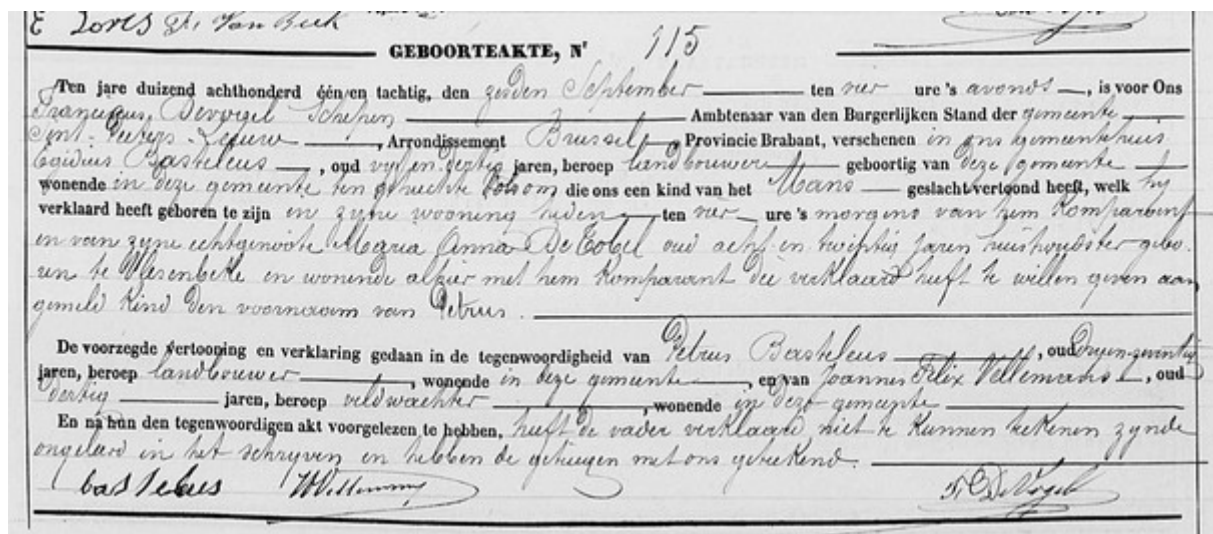 E Zores Fr. Van Beek
GEBOORTEAKTE, Nr 115
Ten jare duizend achthonderd één en tachtig, den zesden September ten vier ure 's avonds, is voor Ons
Franciscus Devogel Schepen Ambtenaar van den Burgerlijken Stand der gemeente
Sint-Peeters-Leeuw, Arrondissement Brussel, Provincie Brabant, verschenen in ons gemeentehuis
Egidius Basteleus, oud vyf en dertig jaren, beroep landbouwer geboortig van deze gemeente
wonende in deze gemeente ten gehuchte die ons een kind van het Mans geslacht vertoond heeft, welk hy
verklaard heeft geboren te zijn in zyne wooning heden ten vier ure 's morgens van hem komparant
en van zyne echtgenoote Maria Anna De Cobel oud acht en twintig jaren huishoudster gebo-
ren te Vlesenbeke en wonende alhier met hem komparant die verklaard heeft te willen geven aan
gemeld kind den voornaam van Petrus.
De voorzegde vertooning en verklaring gedaan in de tegenwoordigheid van Petrus Basteleus, oud Dryenzeventig
jaren, beroep landbouwer, wonende in deze gemeente, en van Joannes Felix Vellemans, oud
dertig jaren, beroep veldwachter, wonende in deze gemeente
En na hun den tegenwoordigen akt voorgelezen te hebben, heeft de vader verklaard niet te kunnen teekenen zynde
ongeleerd in het schryven en hebben de getuigen met ons geteekend.
basteleus Fr. De Vogel